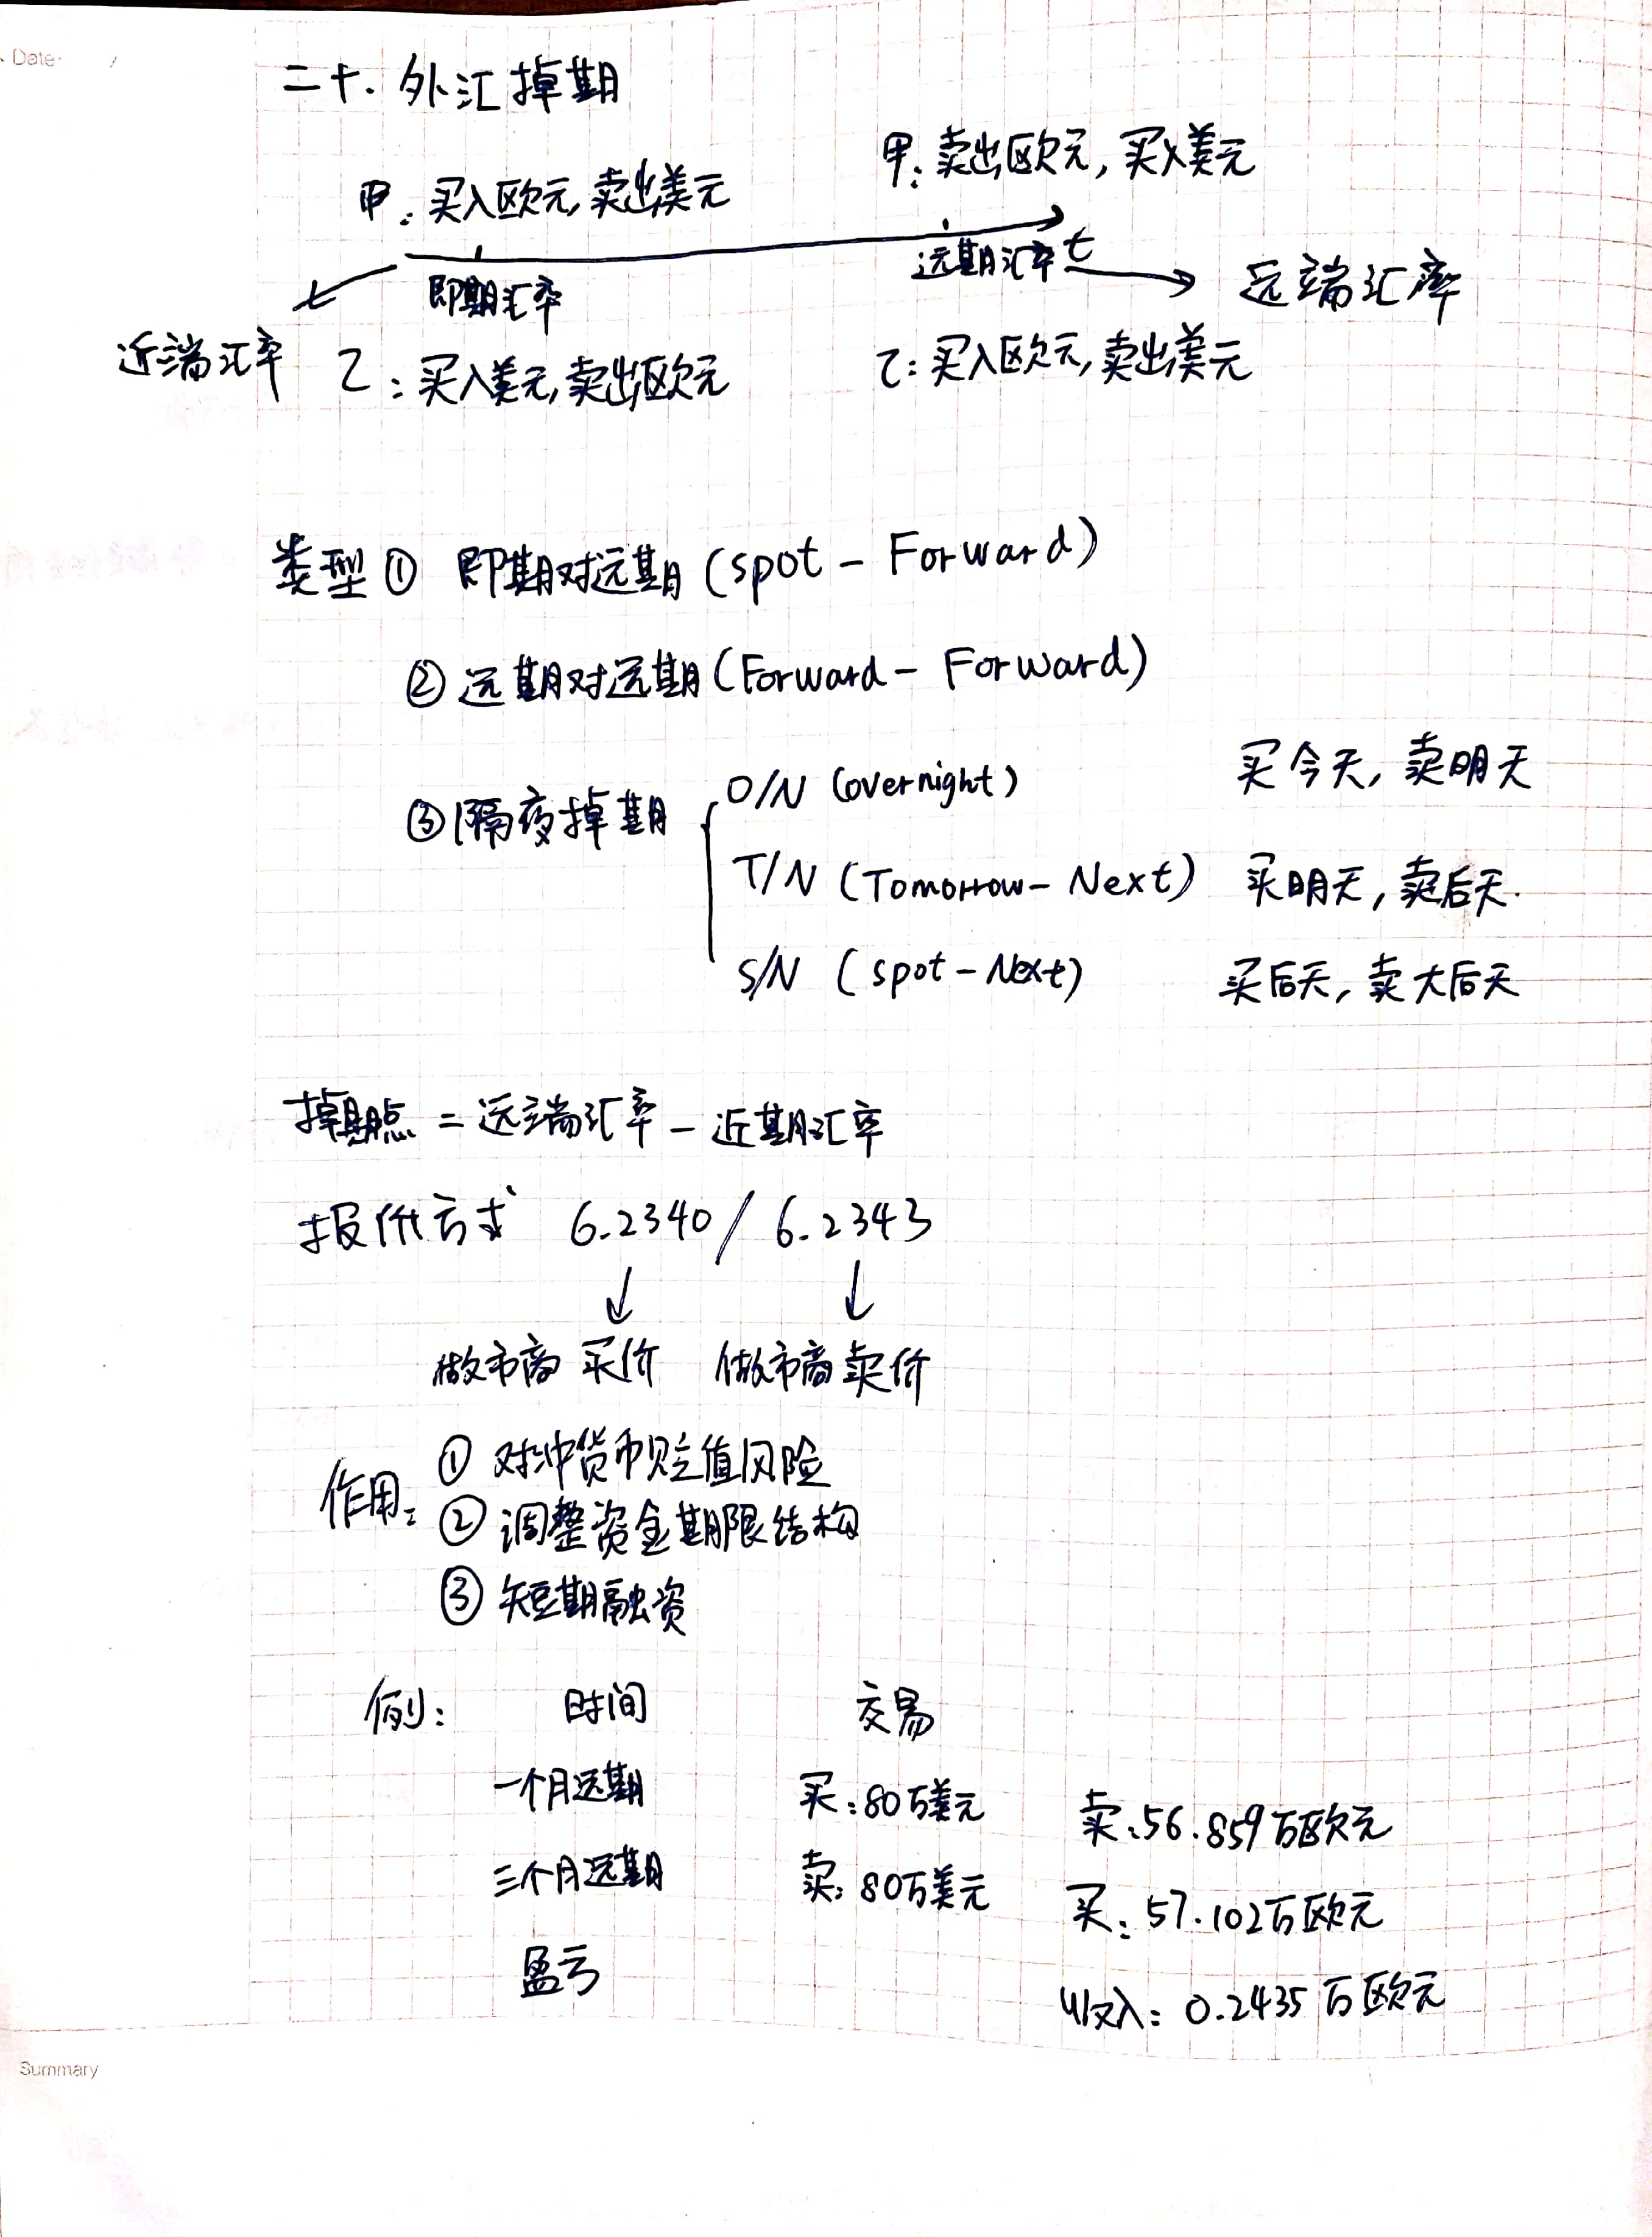 Date· /
二十. 外汇掉期
甲: 买入欧元, 卖出美元
甲: 卖出欧元, 买入美元
即期汇率
远期汇率 t
近端汇率
远端汇率
乙: 买入美元, 卖出欧元
乙: 买入欧元, 卖出美元
类型 ① 即期对远期 (spot - Forward)
② 远期对远期 (Forward - Forward)
③ 隔夜掉期
O/N (overnight) 买今天, 卖明天
T/N (Tomorrow- Next) 买明天, 卖后天.
S/N (spot - Next) 买后天, 卖大后天
掉期点 = 远端汇率 - 近期汇率
报价方式 6.2340 / 6.2343
做市商 买价 做市商 卖价
作用:
① 对冲货币贬值风险
② 调整资金期限结构
③ 短期融资
例: 时间 交易
一个月远期 买: 80万美元 卖: 56.859万欧元
三个月远期 卖: 80万美元 买: 57.102万欧元
盈亏 收入: 0.2435 万欧元
Summary